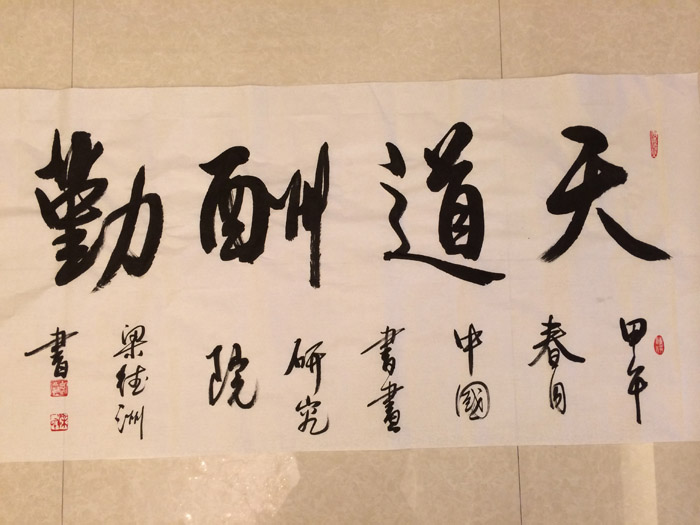 天道酬勤
甲午
春月
中國
書畫
研究
院
梁德洲
書